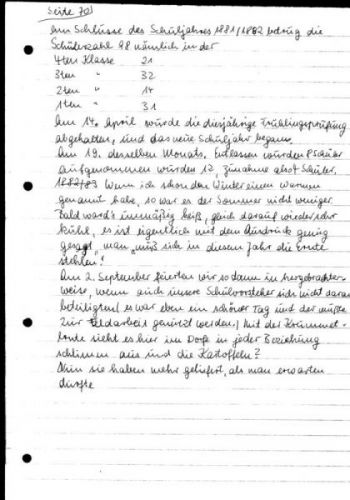 Seite 70
Am Schlusse des Schuljahres 1881/1882 betrug die
Schülerzahl 98 nämlich in der
4ten Klasse 21
3ten " 32
2ten " 14
1ten " 31
Am 14. April wurde die diesjährige Frühlingsprüfung
abgehalten, und das neue Schuljahr begann
Am 19. desselben Monats. Entlassen wurden 8 Schüler
aufgenommen wurden 12, Zunahme also 4 Schüler.
1882/83 Wenn ich schon den Winter einen warmen
genannt habe, so war es der Sommer nicht weniger
bald ward's unmäßig heiß, gleich darauf wieder sehr
kühl, es ist eigentlich mit dem Ausdruck genug
gesagt, "man muß sich in diesem Jahr die Ernte
stehlen!"
Am 2. September feierten wir sodann in hergebrachter
Weise, wenn auch unsere Schulvorsteher sich nicht daran
beteiligten (es war eben ein schöner Tag und der mußte
zur Feldarbeit genützt werden.) Mit der Krummet-
ernte sieht es hier im Dorfe in jeder Beziehung
schlimm aus und die Kartoffeln?
Nun sie haben mehr geliefert, als man erwarten
durfte